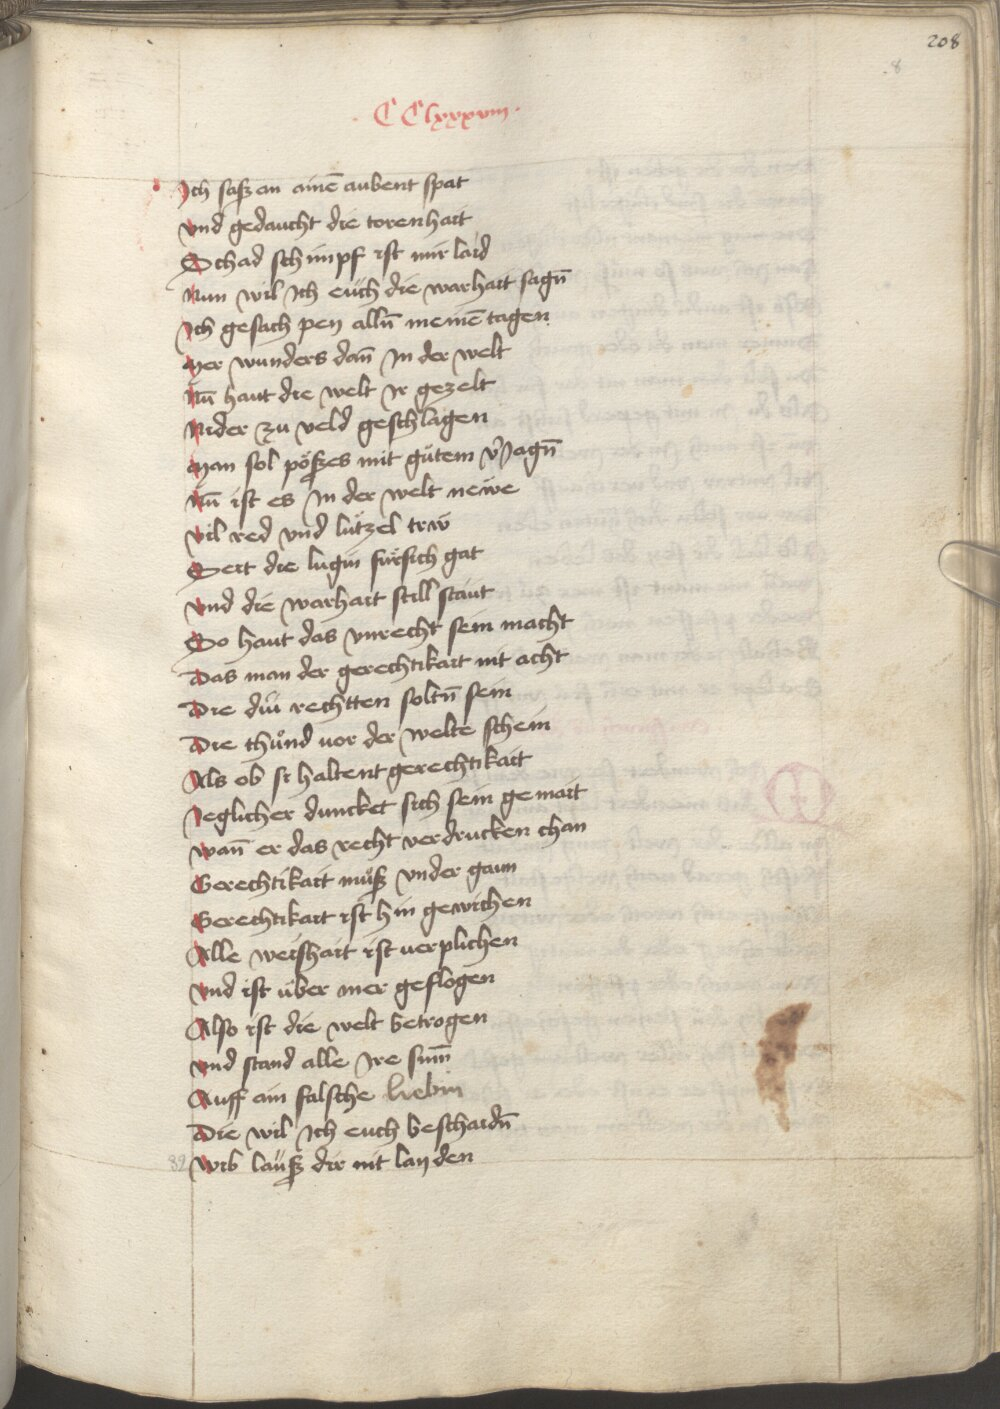 208
8
CClxxxviii
Ich saſz an ainē aubent spat
vnd gedaucht die torenhait
Schad schimpf ist mir laid
Nun wil Ich eüch die warhait sagn̄
Ich gesach pey alln̄ meinē tagen
Mer wunders dan̄ In der welt
Nū haut die welt Ir gezelt
Nider zu veld geschlagen
Man sol pöszes mit gütem v̓Jagn̄
Nū ist es In der welt newe
Vil red vnd lützel trw
Seit die lugin fürsich gat
vnd die warhait still staut
So haut das vnrecht sein macht
Das man der gerechtikait nit acht
Die düi rechtten soltn̄ sein
Die thůnd vor der welte schein
Als ob si haltent gerechtikait
Ieglicher duncket sich sein gemait
wan̄ er das recht verdrucken chan
Gerechtikait müsz vnder gaun
Gerechtikait ist hin gewichen
Alle weishait ist verplichen
vnd ist über mer geflogen
Also ist die welt betrogen
vnd stand alle Ire sinn̄
Auff ain falsche liebin
Die wil Ich euch beschaidn̄
Wib lausz dir nit layden